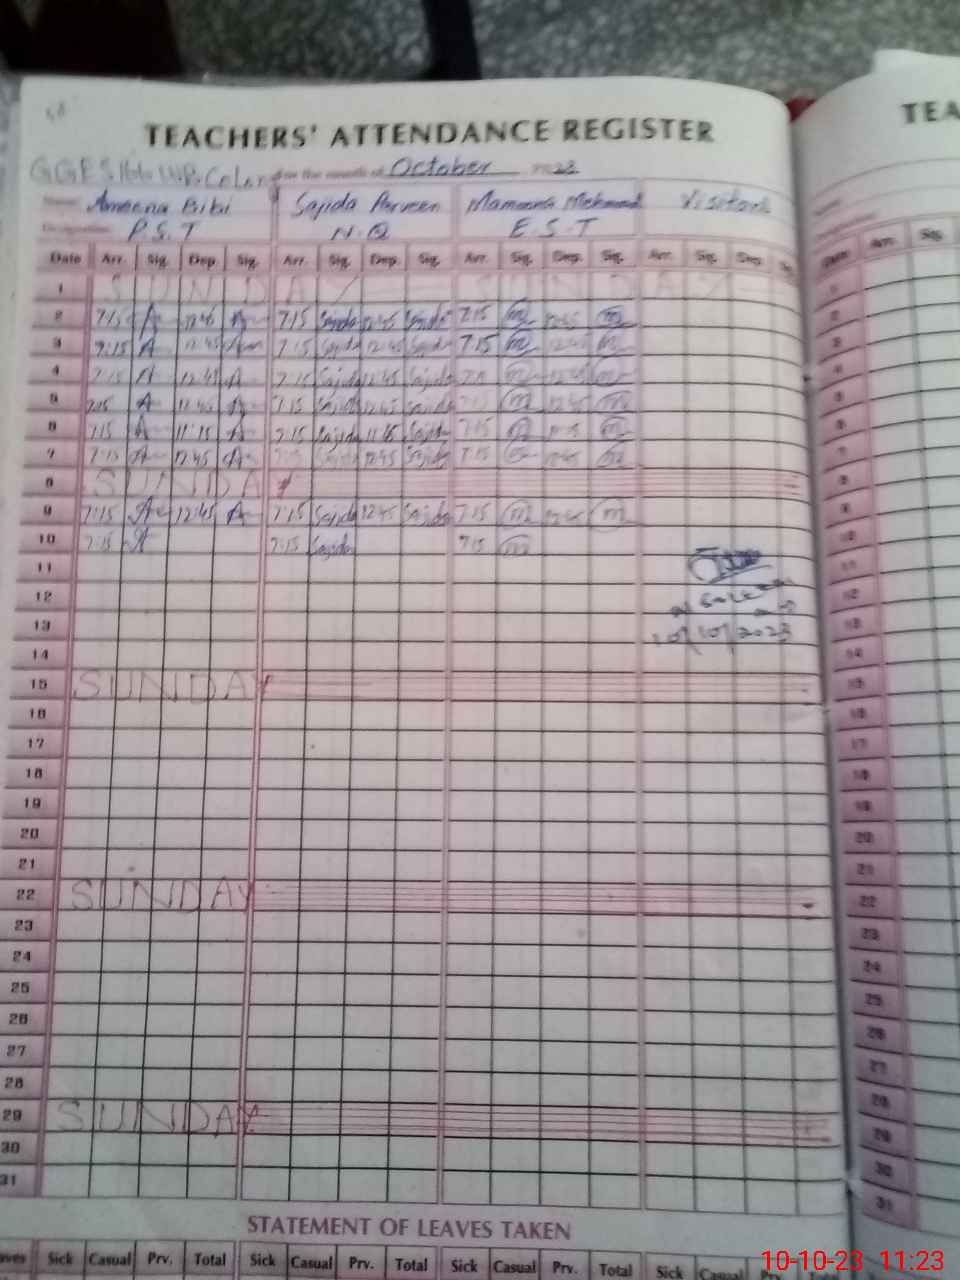 TEACHERS' ATTENDANCE REGISTER
TEA
for the month of October 23
Name Ameena Bibi Sajida Parveen Mehmood Visitors
Designation P.S.T N.Q E.S.T
Date Arr. Sig. Dep. Sig. Arr. Sig. Dep. Sig. Arr. Sig. Dep. Sig. Arr. Sig. Dep. Sig. Date Arr. Sig.
1 SUNDAY SUNDAY 1
2 7:15 A 12:45 A 7:15 Sajida 12:45 Sajida 7:15 m 12:45 m 2
3 7:15 A 12:45 7:15 Sajida 12:45 Sajida 7:15 m 12:45 m 3
4 7:15 A 12:45 A 7:15 Sajida 12:45 Sajida m 12:45 m 4
5 7:15 A 12:45 A 7:15 Sajida 12:45 Sajida 7:15 m 12:45 m 5
6 7:15 A 11:15 A 7:15 Sajida Sajida 7:15 m m 6
7 7:15 A 12:45 A 7:15 Sajida 12:45 Sajida 7:15 m 12:45 m 7
8 SUNDAY 8
9 7:15 A 12:45 A 7:15 Sajida 12:45 Sajida 7:15 m 12:45 m 9
10 7:15 A 7:15 Sajida 7:15 m 10
11 11
12 12
13 10/10/2023 13
14 14
15 SUNDAY 15
16 16
17 17
18 18
19 19
20 20
21 21
22 SUNDAY 22
23 23
24 24
25 25
26 26
27 27
28 28
29 SUNDAY 29
30 30
31 31
STATEMENT OF LEAVES TAKEN
Sick Casual Prv. Total Sick Casual Prv. Total Sick Casual Prv. Total Sick Casual Prv.
10-10-23 11:23